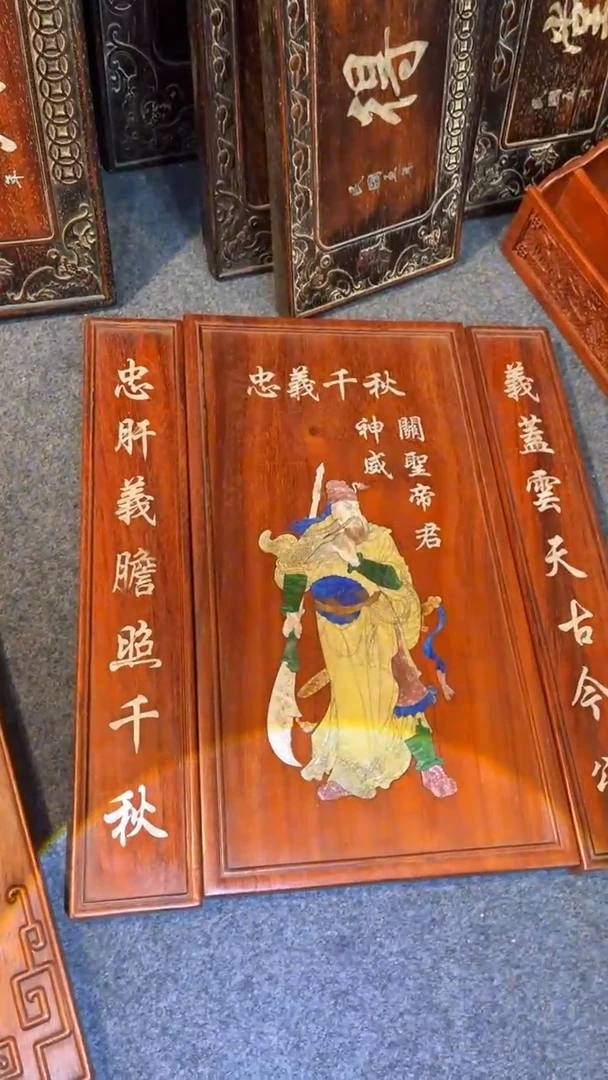 得
堂
忠義千秋
關聖帝君
神威
義蓋雲天古今
忠肝義膽照千秋